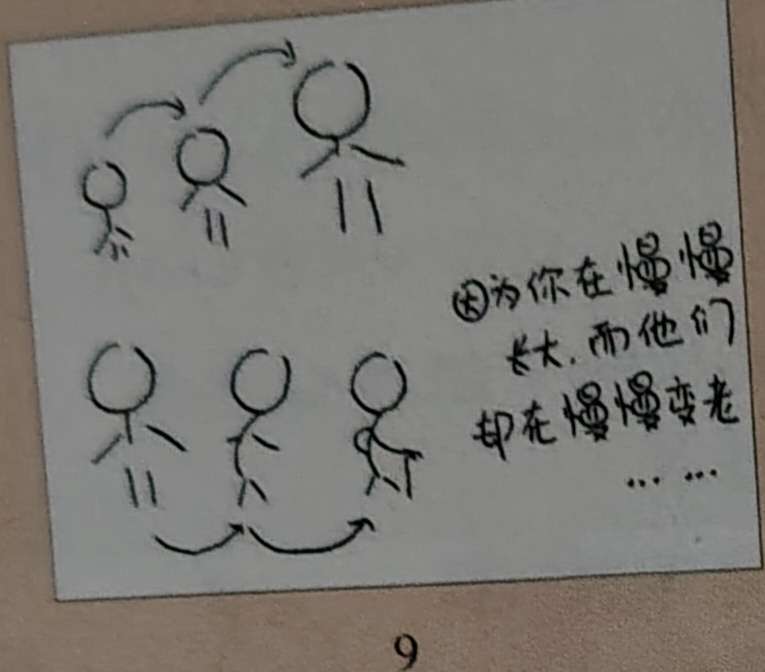 因为你在慢慢
长大,而他们
却在慢慢变老
... ...
9